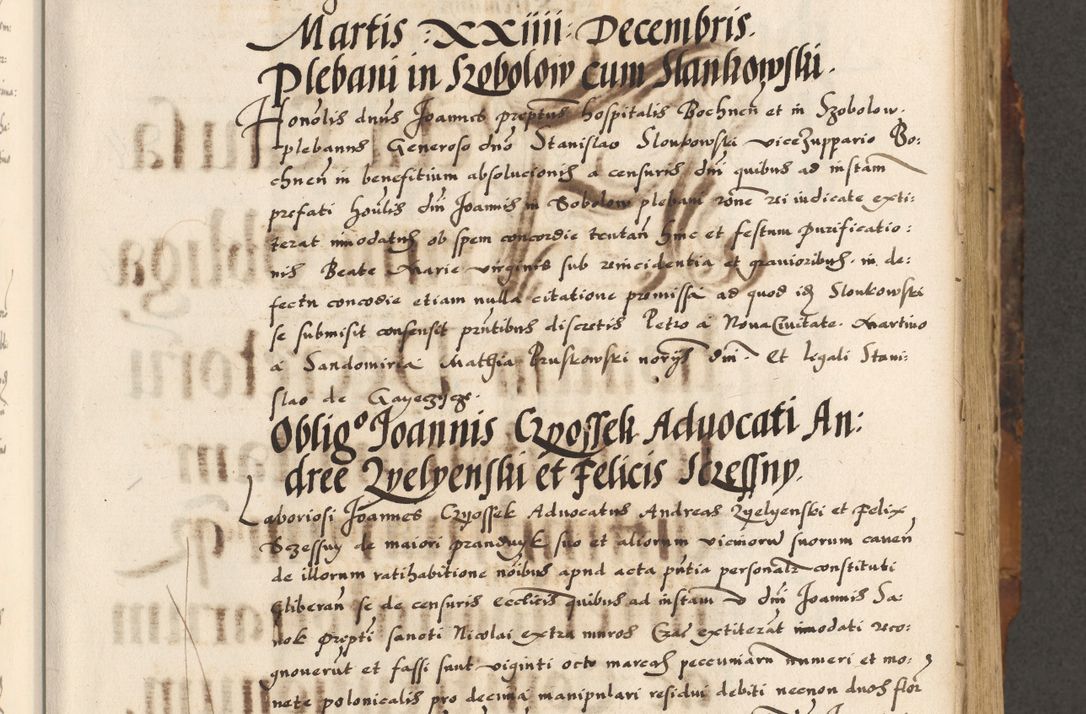 Martis : XXiiii : Decembris.
Plebani in Szobolow cum Slankowski.
Honolis dnus Joannes preptus hospitalis Bochnen et in Szobolow.
plebanus Generoso dno Stanislao Slonkowski vicezuppario Bo:
chnen in benefitium absolucionis a censuris dni quibus ad instam
prefati honlis dni Joannis in Sobolow plebani rone rei iudicate exti:
terat innodatus ob spem concordie tentan hinc et festum purificatio:
nis Beate Marie virginis sub reincidentia et gravioribus. in de:
fectu concodie etiam nulla citatione promissa ad quod idem Slonkowski
se submisit consensit pntibus discretis Petro a Nova Civitate. Martino
a Sandomiria Mathia Pruskowski norijs dni. Et legali Stani:
slao de Gayeczycze.
Obligo Joannis Czyossek Advocati An:
dree Zyelyenski et Felicis Sczessny.
Laboriosi Joannes Czyossek Advocatus Andreas Zyelyenski et Felix
Sczessny de maiori prandnyk suo et aliorum vicinorum suorum caven
de illorum ratihabitione noibus apud acta pntia personalr constituti
Cliberan se de censuris ecclicis quibus ad instam v dni Joannis Sa:
nok prepti sancti Nicolai extra muros Crac extiterat innodati reco:
gnoverut et fassi sunt viginti octo marcas pecuniarum numeri et mo:
nete polonicalis pro decima manipulari residui debiti necnon duos flor